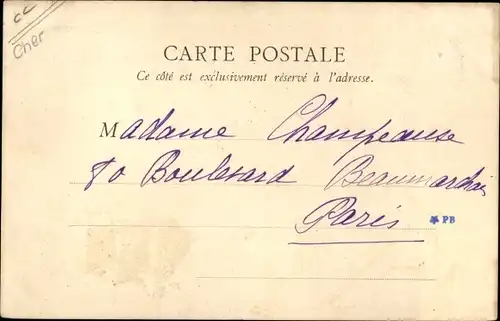 Cher
CARTE POSTALE
Ce côté est exclusivement réservé à l'adresse.
Madame Champeause
80 Boulevard Beaumarchais
Paris
PB